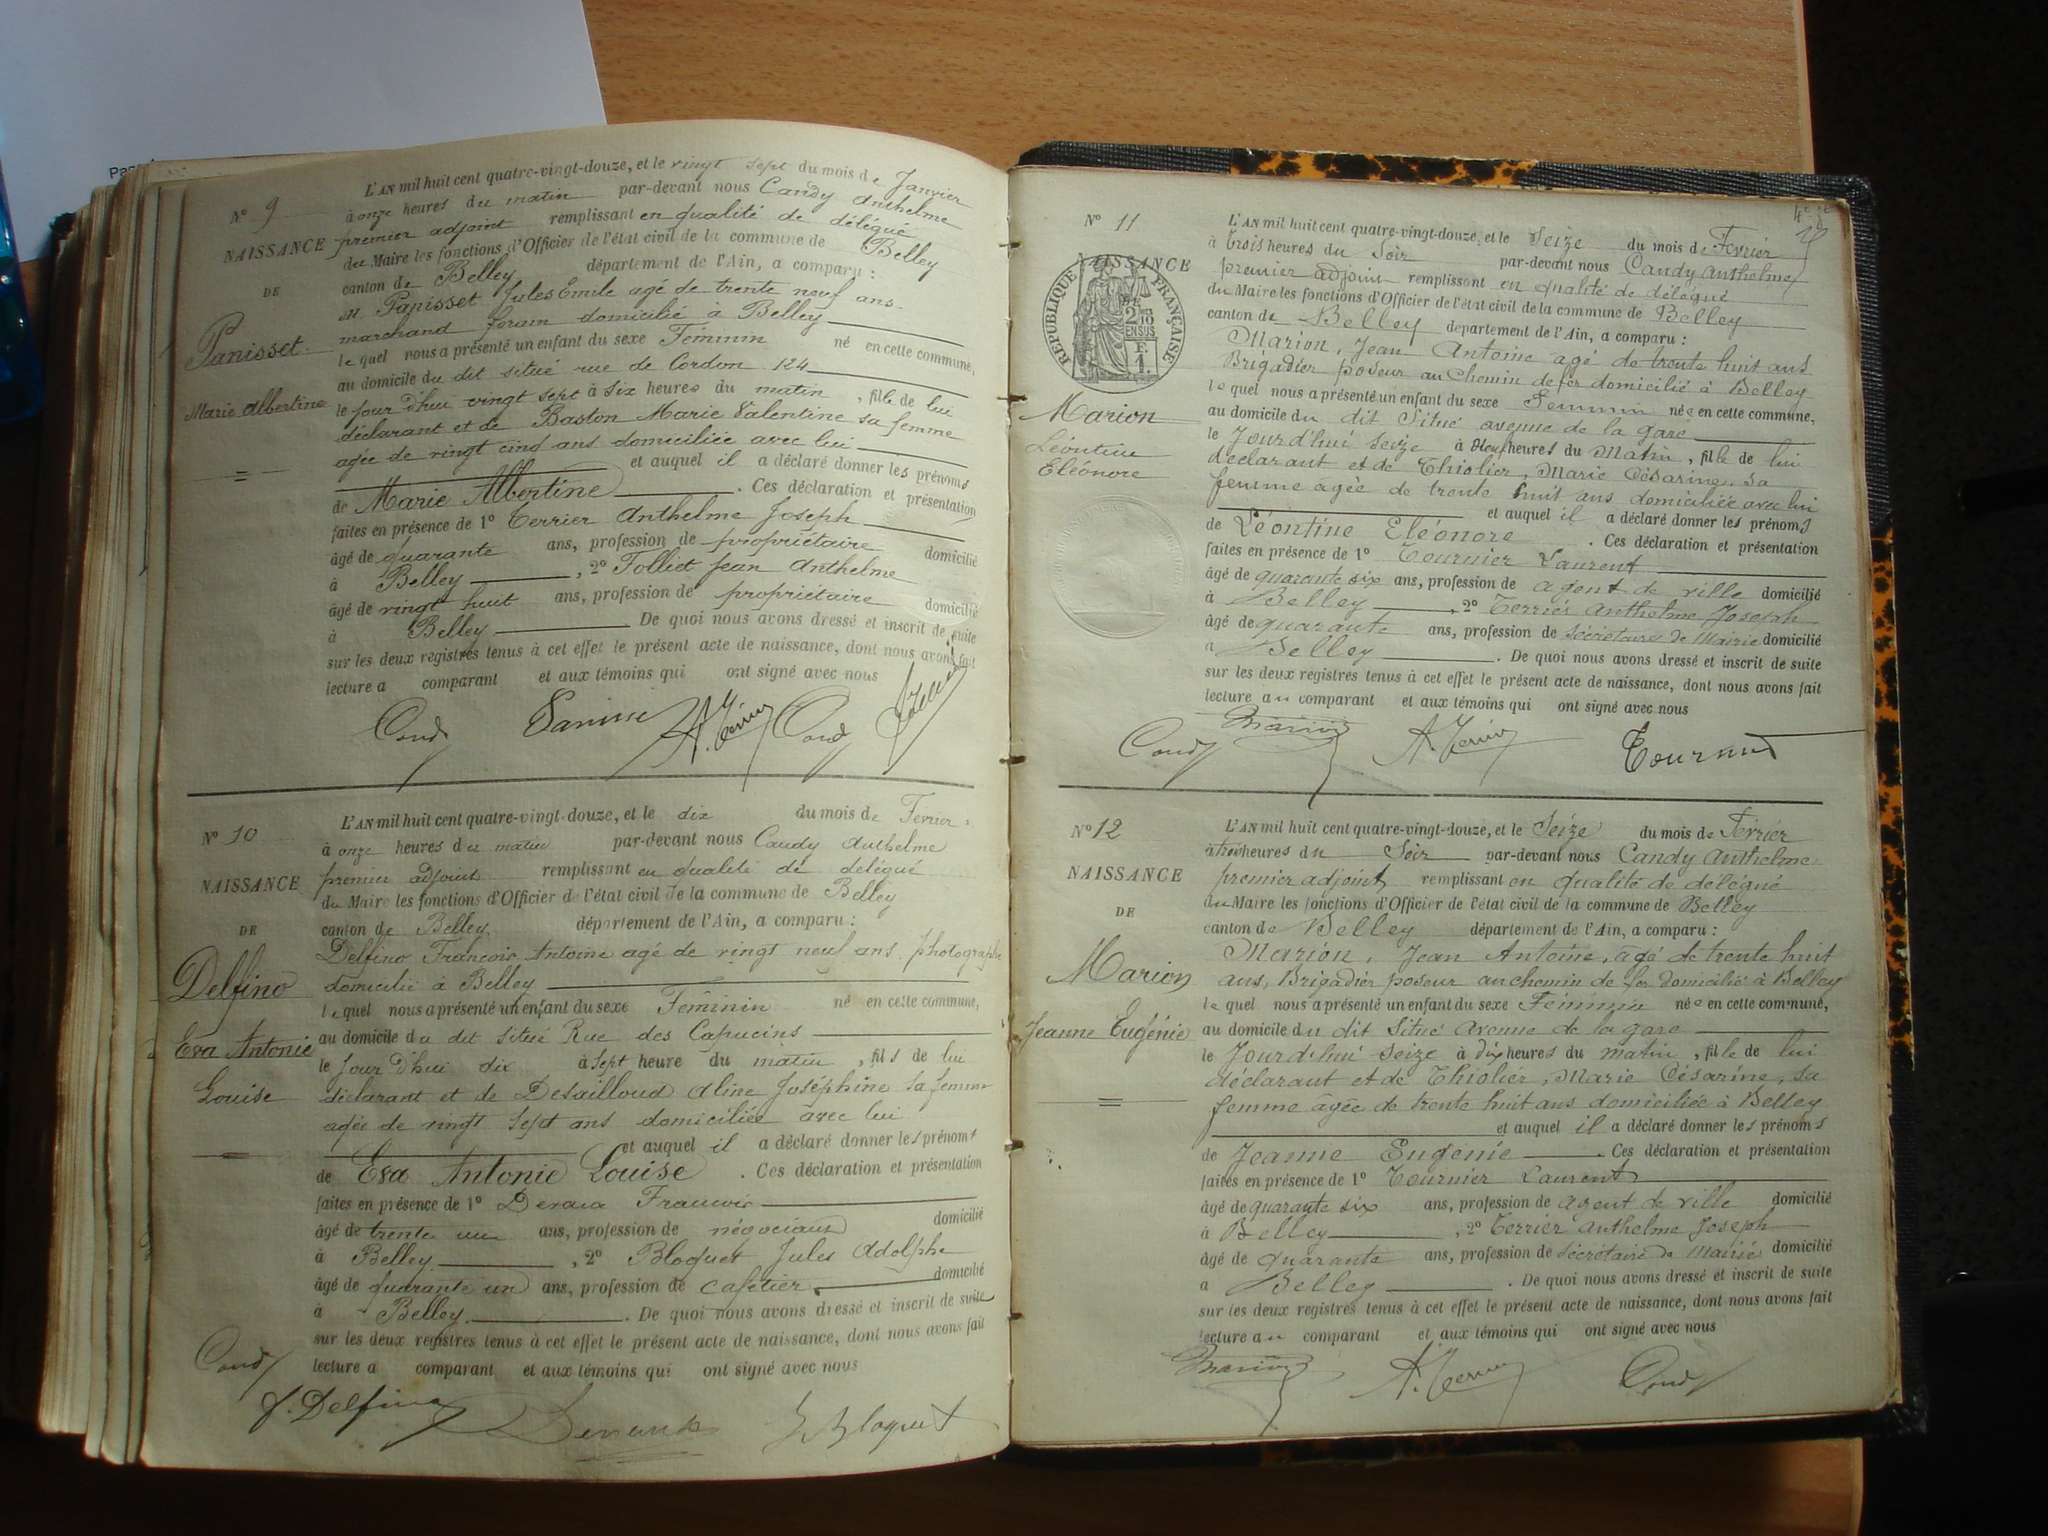 Pa
N° 9
NAISSANCE
DE
Panisset
Marie Albertine
L'AN mil huit cent quatre-vingt-douze, et le vingt sept du mois de Janvier
à onze heures du matin par-devant nous Candy Anthelme
premier adjoint remplissant en qualité de délégué
du Maire les fonctions d'Officier de l'état civil de la commune de Belley
canton de Belley département de l'Ain, a comparu :
M Panisset Jules Emile agé de trente neuf ans
marchand forain domicilié à Belley
lequel nous a présenté un enfant du sexe Féminin né en cette commune,
au domicile du dit situé rue de Cordon 124
le jour d'hui vingt sept à six heures du matin, fille de lui
déclarant et de Baston Marie Valentine sa femme
agée de vingt cinq ans domiciliée avec lui
et auquel il a déclaré donner les prénoms
de Marie Albertine. Ces déclaration et présentation
faites en présence de 1° Terrier Anthelme Joseph
âgé de quarante ans, profession de propriétaire domicilié
à Belley, 2° Folliet Jean Anthelme
âgé de vingt huit ans, profession de propriétaire domicilié
à Belley De quoi nous avons dressé et inscrit de suite
sur les deux registres tenus à cet effet le présent acte de naissance, dont nous avons fait
lecture a comparant et aux témoins qui ont signé avec nous
Candy Panisset A. Terrier Candy
N° 10
NAISSANCE
DE
Delfino
Eva Antonie
Louise
L'AN mil huit cent quatre-vingt-douze, et le dix du mois de Fevrier
à onze heures du matin par-devant nous Candy Anthelme
premier adjoint remplissant en qualité de délégué
du Maire les fonctions d'Officier de l'état civil de la commune de Belley
canton de Belley département de l'Ain, a comparu :
Delfino François Antoine agé de vingt neuf ans photographe
domicilié à Belley
lequel nous a présenté un enfant du sexe Féminin né en cette commune,
au domicile du dit situé Rue des Capucins
le jour d'hui dix à sept heure du matin, fils de lui
déclarant et de Desailloud Aline Joséphine sa femme
agée de vingt sept ans domiciliée avec lui
et auquel il a déclaré donner les prénoms
de Eva Antonie Louise. Ces déclaration et présentation
faites en présence de 1° François
âgé de trente un ans, profession de négociant domicilié
à Belley, 2° Bloquet Jules Adolphe
âgé de quarante un ans, profession de cafetier domicilié
à Belley. De quoi nous avons dressé et inscrit de suite
sur les deux registres tenus à cet effet le présent acte de naissance, dont nous avons fait
lecture a comparant et aux témoins qui ont signé avec nous
Candy
f. Delfino Bloquet
N° 11
NAISSANCE
DE
RÉPUBLIQUE FRANÇAISE
Marion
Léontine
Eléonore
L'AN mil huit cent quatre-vingt-douze, et le Seize du mois de Fevrier
à trois heures du Soir par-devant nous Candy Anthelme
premier adjoint remplissant en qualité de délégué
du Maire les fonctions d'Officier de l'état civil de la commune de Belley
canton de Belley département de l'Ain, a comparu :
Marion, Jean Antoine agé de trente huit ans
Brigadier poseur au chemin de fer domicilié à Belley
lequel nous a présenté un enfant du sexe Feminin née en cette commune,
au domicile du dit Situé avenue de la gare
le Jour d'hui seize à heures du Matin, fille de lui
déclarant et de Thiolier, Marie Césarine, sa
femme agée de trente huit ans domiciliée avec lui
et auquel il a déclaré donner les prénoms
de Léontine Eléonore. Ces déclaration et présentation
faites en présence de 1° Tournier Laurent
âgé de quarante six ans, profession de agent de ville domicilié
à Belley, 2° Terrier Anthelme Joseph
âgé de quarante ans, profession de Sécrétaire de Mairie domicilié
à Belley. De quoi nous avons dressé et inscrit de suite
sur les deux registres tenus à cet effet le présent acte de naissance, dont nous avons fait
lecture au comparant et aux témoins qui ont signé avec nous
Candy Marion A. Terrier Tournier
N° 12
NAISSANCE
DE
Marion
Jeanne Eugénie
L'AN mil huit cent quatre-vingt-douze, et le Seize du mois de Fevrier
à trois heures du Soir par-devant nous Candy Anthelme
premier adjoint remplissant en qualité de délégué
du Maire les fonctions d'Officier de l'état civil de la commune de Belley
canton de Belley département de l'Ain, a comparu :
Marion, Jean Antoine, agé de trente huit
ans, Brigadier poseur au chemin de fer domicilié à Belley
lequel nous a présenté un enfant du sexe Féminin née en cette commune,
au domicile du dit Situé Avenue de la gare
le Jour d'hui seize à dix heures du matin, fille de lui
déclarant et de Thiolier, Marie Césarine, sa
femme âgée de trente huit ans domiciliée à Belley
et auquel il a déclaré donner les prénoms
de Jeanne Eugénie. Ces déclaration et présentation
faites en présence de 1° Tournier Laurent
âgé de quarante six ans, profession de agent de ville domicilié
à Belley, 2° Terrier Anthelme Joseph
âgé de quarante ans, profession de Sécrétaire de Mairie domicilié
à Belley. De quoi nous avons dressé et inscrit de suite
sur les deux registres tenus à cet effet le présent acte de naissance, dont nous avons fait
lecture au comparant et aux témoins qui ont signé avec nous
Marion A. Terrier Candy